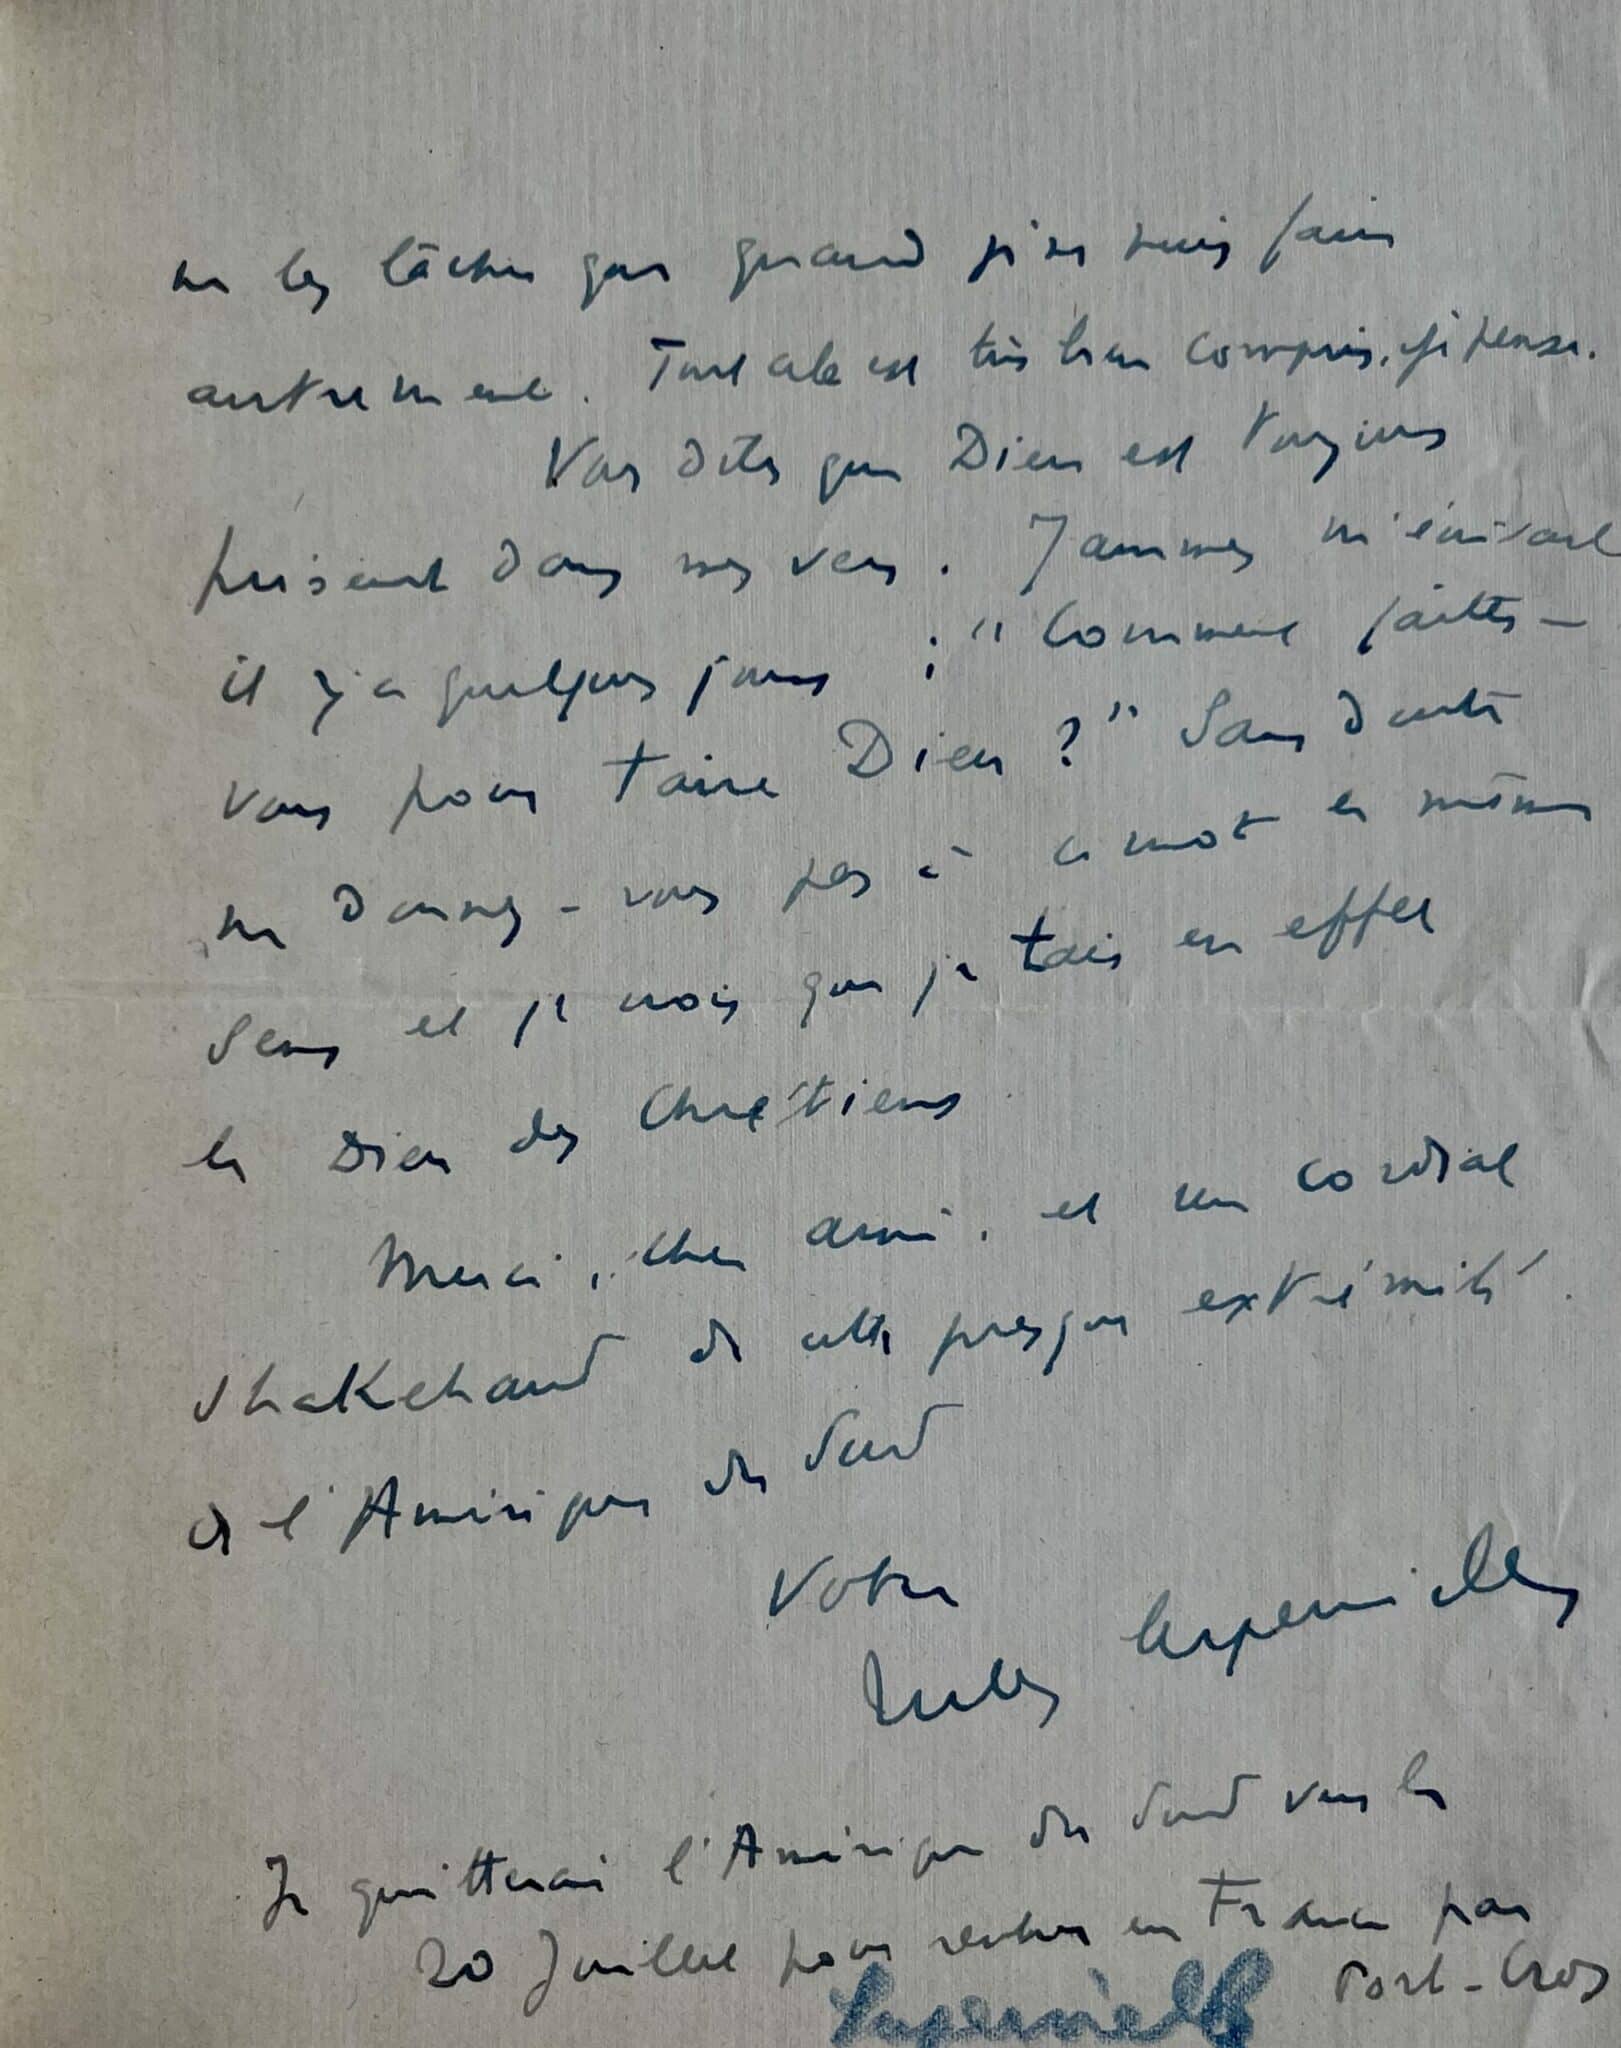 ne les lâcher que quand je ne puis faire
autrement. Tout cela est très bien compris, je pense.
Vous dites que Dieu est toujours
présent dans mes vers. Jammes m'écrivait
il y a quelques jours : "Comment faites-
vous pour taire Dieu ?" Sans doute
ne donnez-vous pas à ce mot le même
sens et je crois que je tais en effet
le Dieu des Chrétiens
Merci, cher ami, et un cordial
shakehand de cette presque extrémité
de l'Amérique du Sud
Votre
Jules Supervielle
Je quitterai l'Amérique du Sud vers le
20 Juillet pour rentrer en France par
Port-Cros
Supervielle